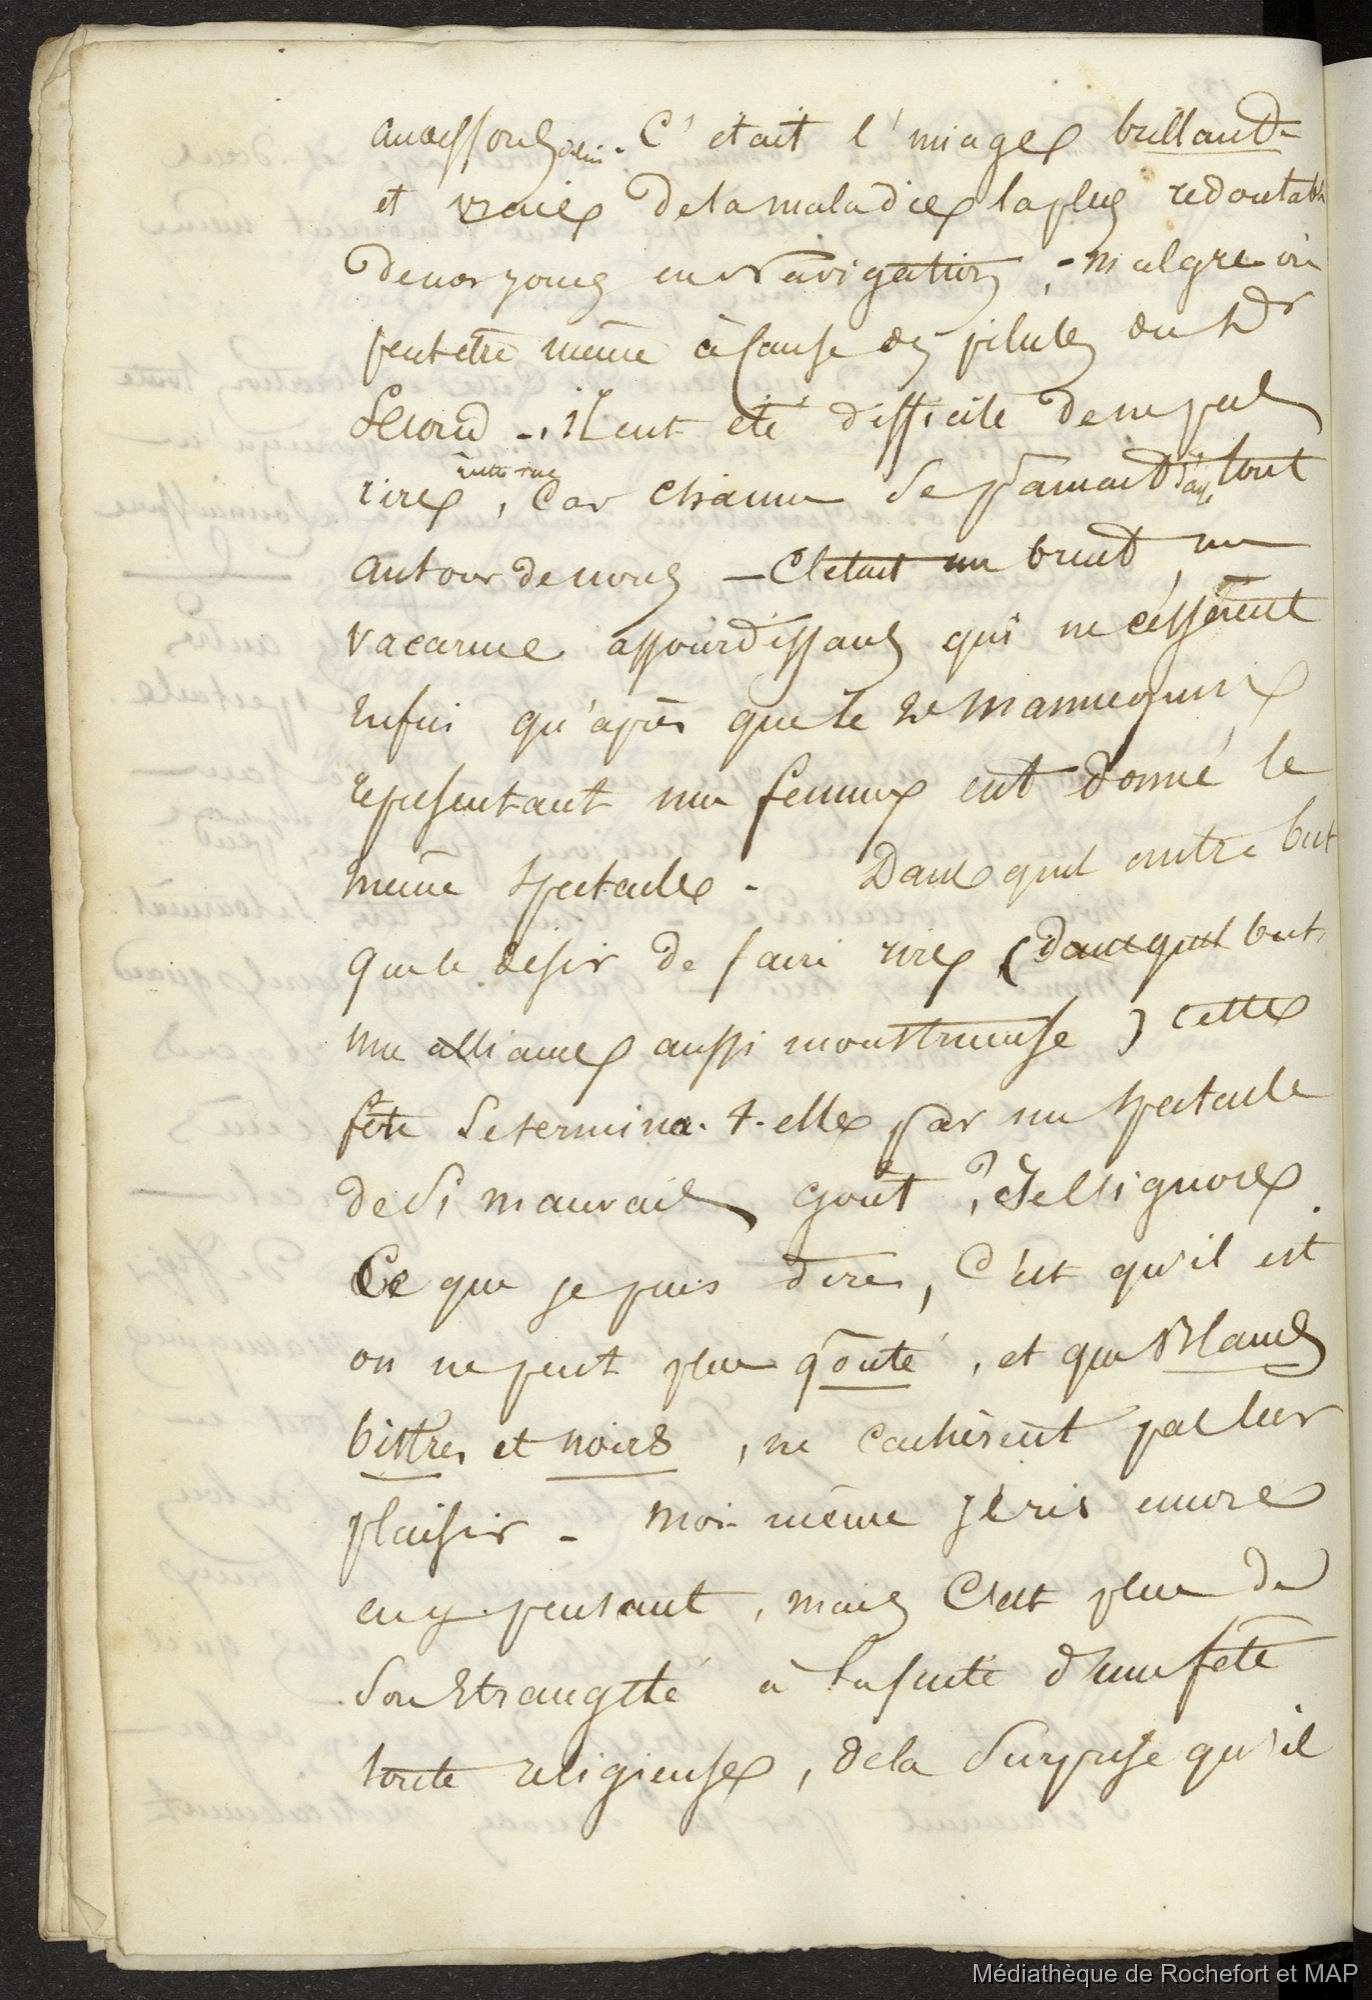 C'était l'image brillante
et vraie de la maladie la plus redoutable
de nos jours en navigation, - malgré ou
peut être même à cause des pilules du Dr
Second -. il eut été difficile de ne pas
rire, Car chacun se pâmait d'aise tout
autour de nous - C'était un bruit, un
vacarme assourdissants qui ne cessèrent
enfin qu'après que le 2e mannequin
représentant une femme eut donné le
même spectacle - Dans quel autre but
que le désir de faire rire (dans quel but
une alliance aussi monstrueuse) cette
fête se termina-t-elle par un spectacle
de si mauvais goût ? Je l'ignore.
Ce que je puis dire, C'est qu'il est
on ne peut plus goûté, et que Blancs
bistres et noirs, ne cachèrent pas leur
plaisir - moi-même je ris encore
en y pensant, mais C'est plus de
son Etrangeté à la suite d'une fête
toute religieuse, de la surprise qu'il
Médiathèque de Rochefort et MAP